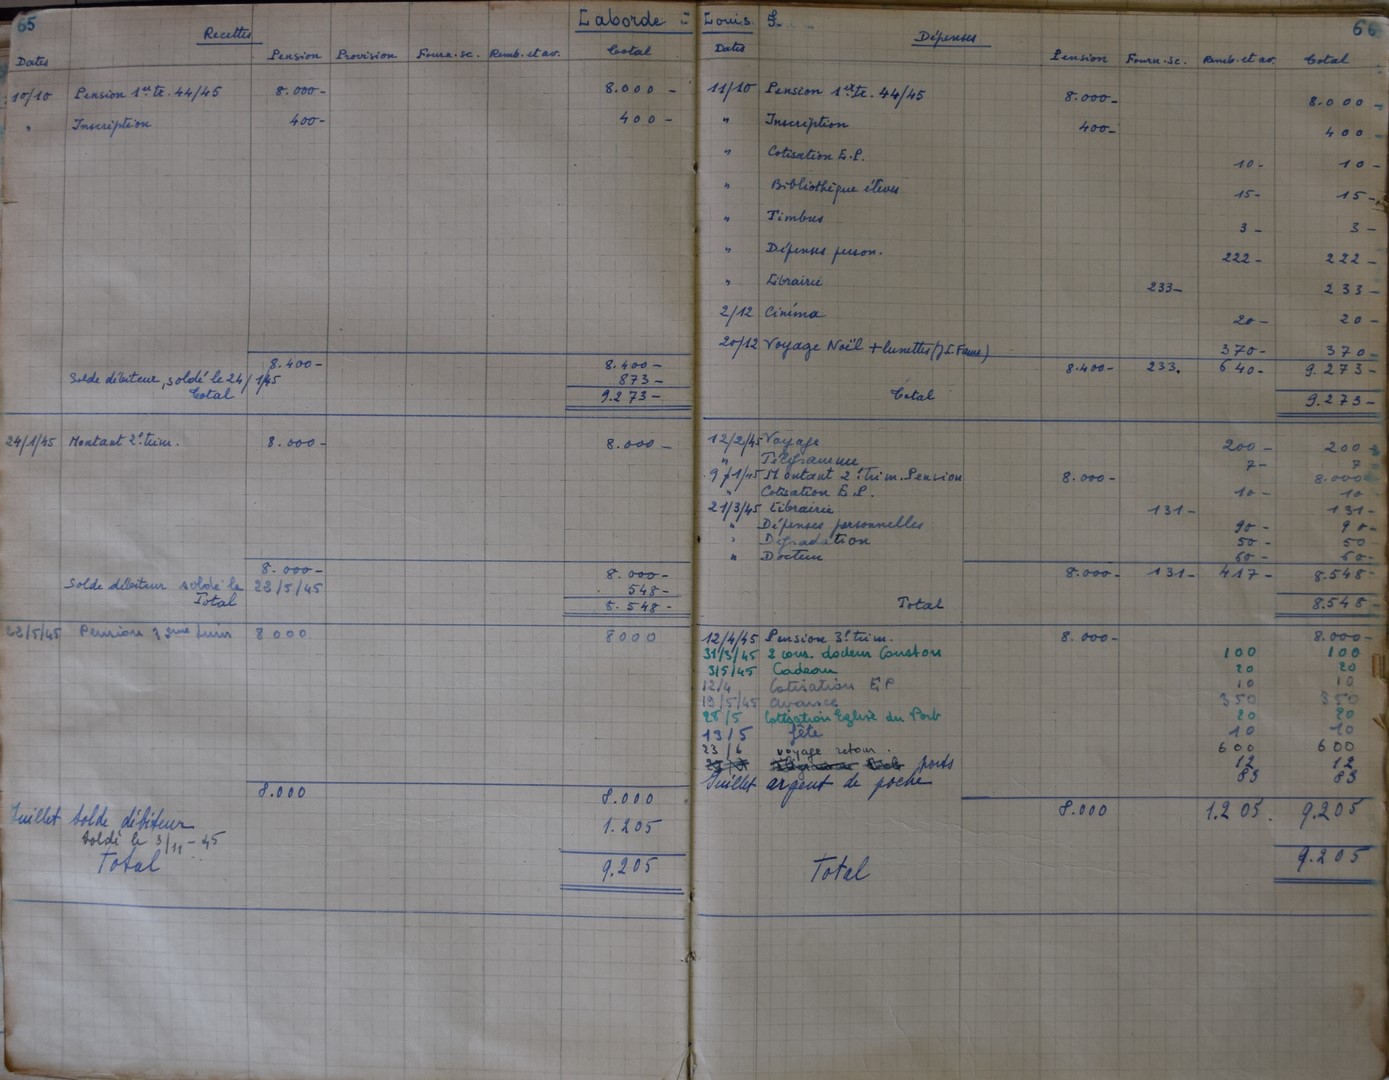 65
Laborde = Louis S.
66
Recettes
Dates Pension Provision Fourn. sc. Remb. et av. Total
10/10 Pension 1er tr. 44/45 8.000- 8.000-
" Inscription 400- 400-
8.400- 8.400-
Solde débiteur, soldé le 24/1/45 873-
Total 9.273-
24/1/45 Montant 2e trim. 8.000- 8.000-
8.000- 8.000-
Solde débiteur soldé le 22/5/45 548-
Total 8.548-
22/5/45 Pension 3ème trim 8000 8000
8.000 8.000
Juillet Solde débiteur 1.205
Soldé le 3/11-45
Total 9.205
Dépenses
Dates Pension Fourn. sc. Remb. et av. Total
11/10 Pension 1er tr. 44/45 8.000- 8.000-
" Inscription 400- 400-
" Cotisation E.P. 10- 10-
" Bibliothèque élèves 15- 15-
" Timbres 3- 3-
" Dépenses person. 222- 222-
" Librairie 233- 233-
2/12 Cinéma 20- 20-
20/12 Voyage Noël + lunettes 370- 370-
8.400- 233. 640- 9.273-
Total 9.273-
12/2/45 Voyage 200- 200-
" Télégramme 7- 7
9/1/45 Montant 2e trim. Pension 8.000- 8.000
" Cotisation E.P. 10- 10-
21/3/45 Librairie 131- 131-
" Dépenses personnelles 90- 90-
" Dégradation 50- 50-
" Docteur 60- 60-
8.000- 131- 417- 8.548-
Total 8.548-
12/4/45 Pension 3e trim. 8.000- 8.000-
31/3/45 2 cons. docteur 100 100
3/5/45 Cadeau 20 20
12/4 Cotisation E P 10 10
19/5/45 avance 350 350
28/5 Cotisation Eglise du Port 20 20
13/5 fête 10 10
23/6 voyage retour. 600 600
ports 12 12
Juillet argent de poche 83 83
8.000 1.205. 9.205
Total 9.205